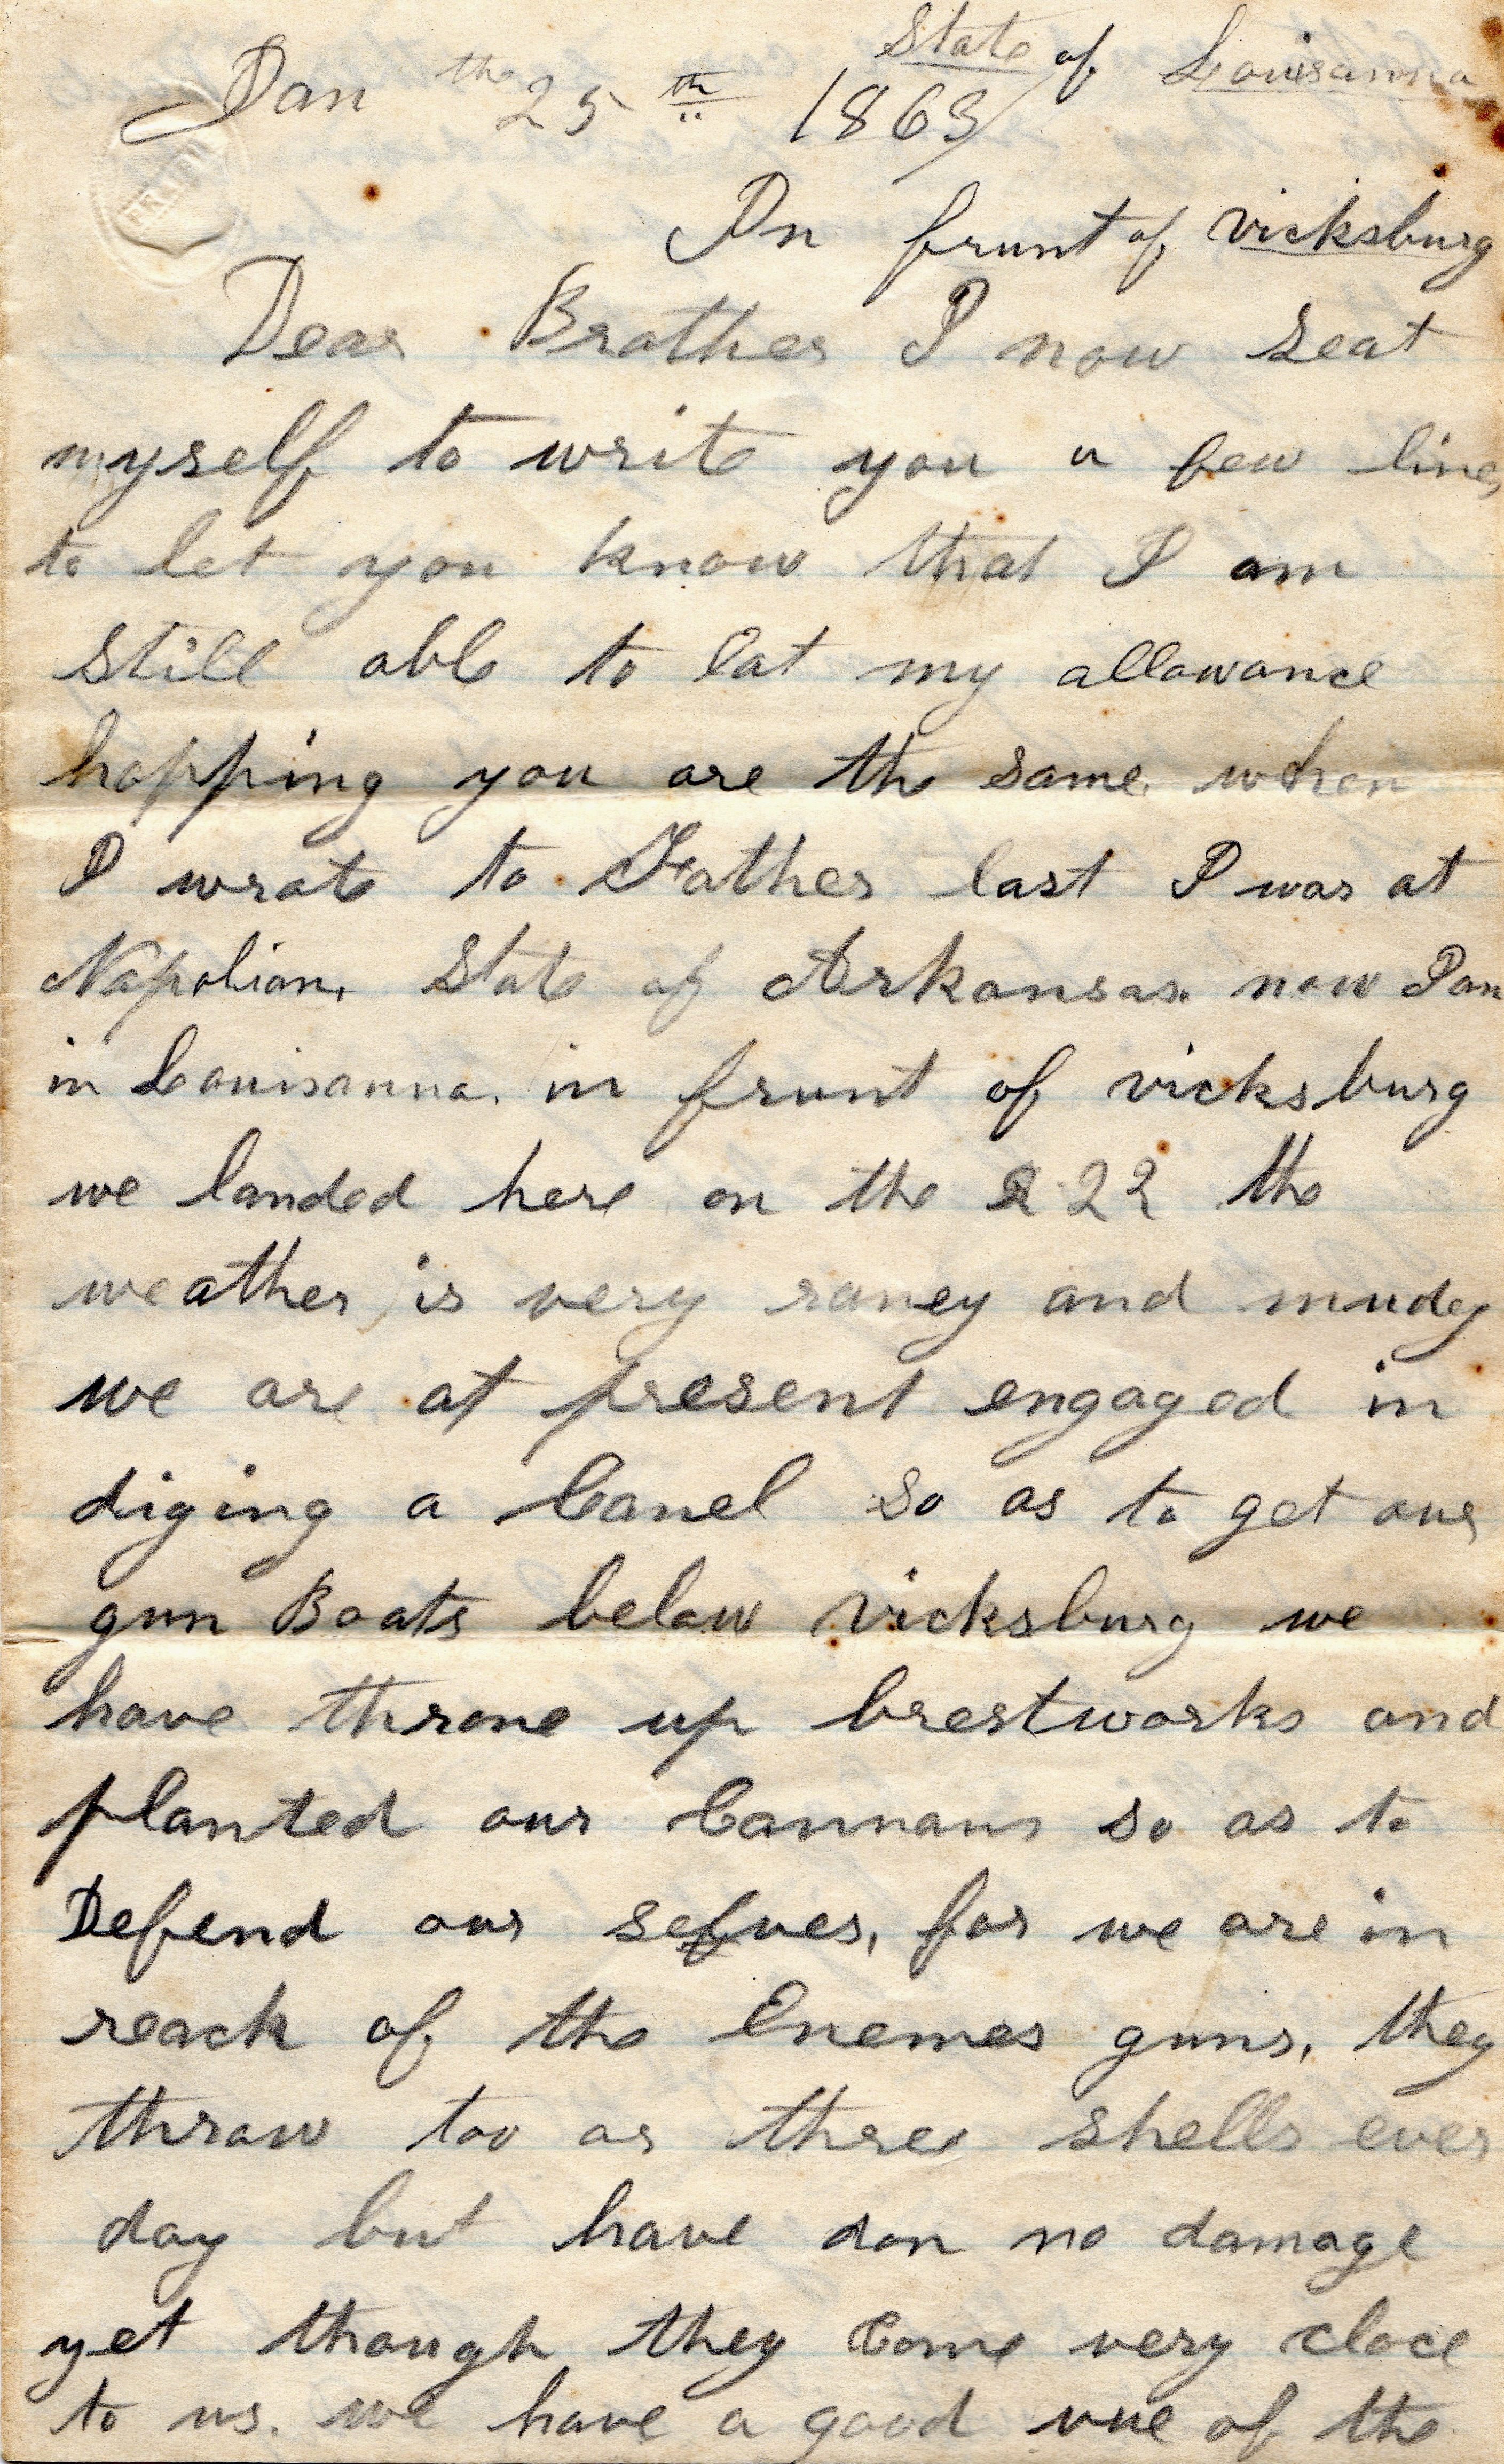 State of Louisanna
Jan the 25th 1863
In frunt of vicksburg
Dear Brother I now seat
myself to write you a few lines
to let you know that I am
still able to eat my allowance
hopping you are the same. when
I wrote to Father last I was at
Napolian. State of Arkansas. now I am
in Louisanna. in frunt of vicksburg
we landed here on the 2 22 the
weather is very raney and mudy
we are at present engaged in
diging a Canel so as to get our
gun Boats below vicksburg we
have throne up brestworks and
planted our Cannans so as to
Defend our selves, for we are in
reach of the Enemes guns, they
throw too or three shells ever
day but have don no damage
yet though they Come very cloce
to us. we have a good vue of the